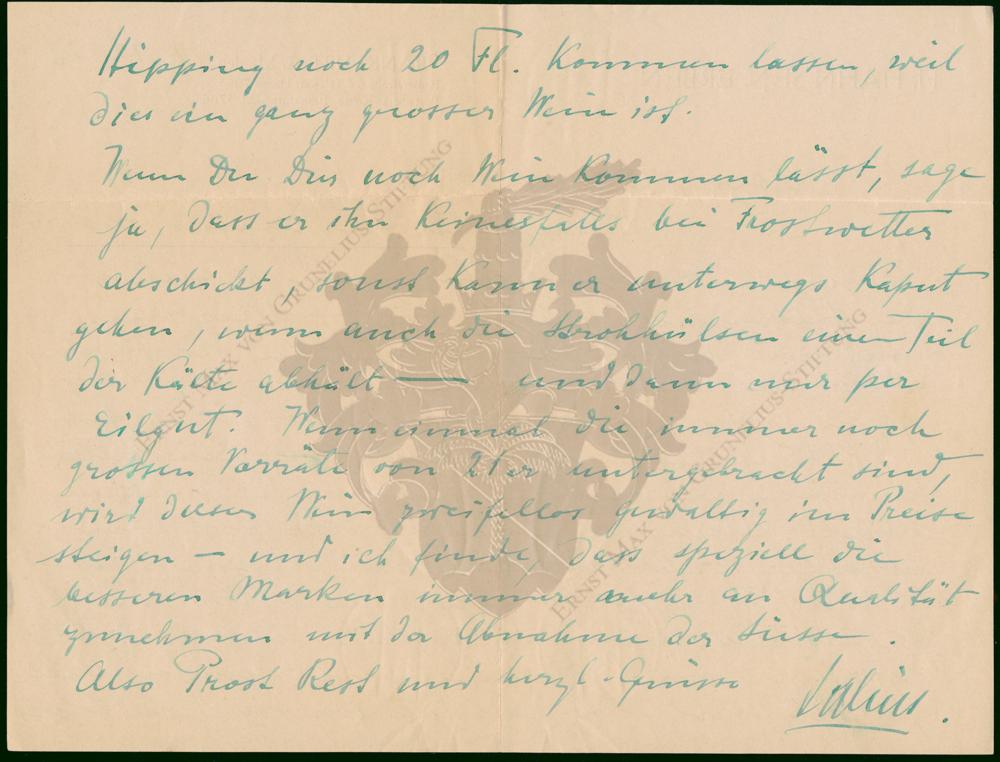 Hipping noch 20 Fl. kommen lassen, weil
dies ein ganz grosser Wein ist.
Wenn Du Dir noch Wein kommen lässt, sage
ja, dass er ihn keinesfalls bei Frostwetter
abschickt, sonst kann er unterwegs kaput
gehen, wenn auch die Strohhülsen einen Teil
der Kälte abhält — und dann nur per
Eilgut. Wenn einmal die immer noch
grossen Vorräte von 21er untergebracht sind,
wird dieser Wein zweifellos gewaltig im Preise
steigen — und ich finde, dass speziell die
besseren Marken immer mehr an Qualität
zunehmen mit der Abnahme der Süsse.
Also Prost Rest und herzl. Grüsse
ERNST MAX VON GRUNELIUS-STIFTUNG
ERNST MAX VON GRUNELIUS-STIFTUNG